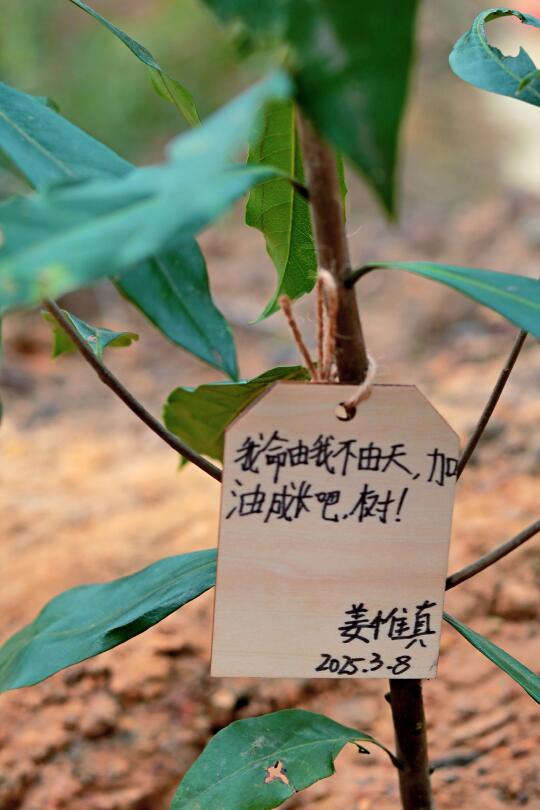 我命由我不由天，加
油成长吧，树！
姜惟真
2025.3-8